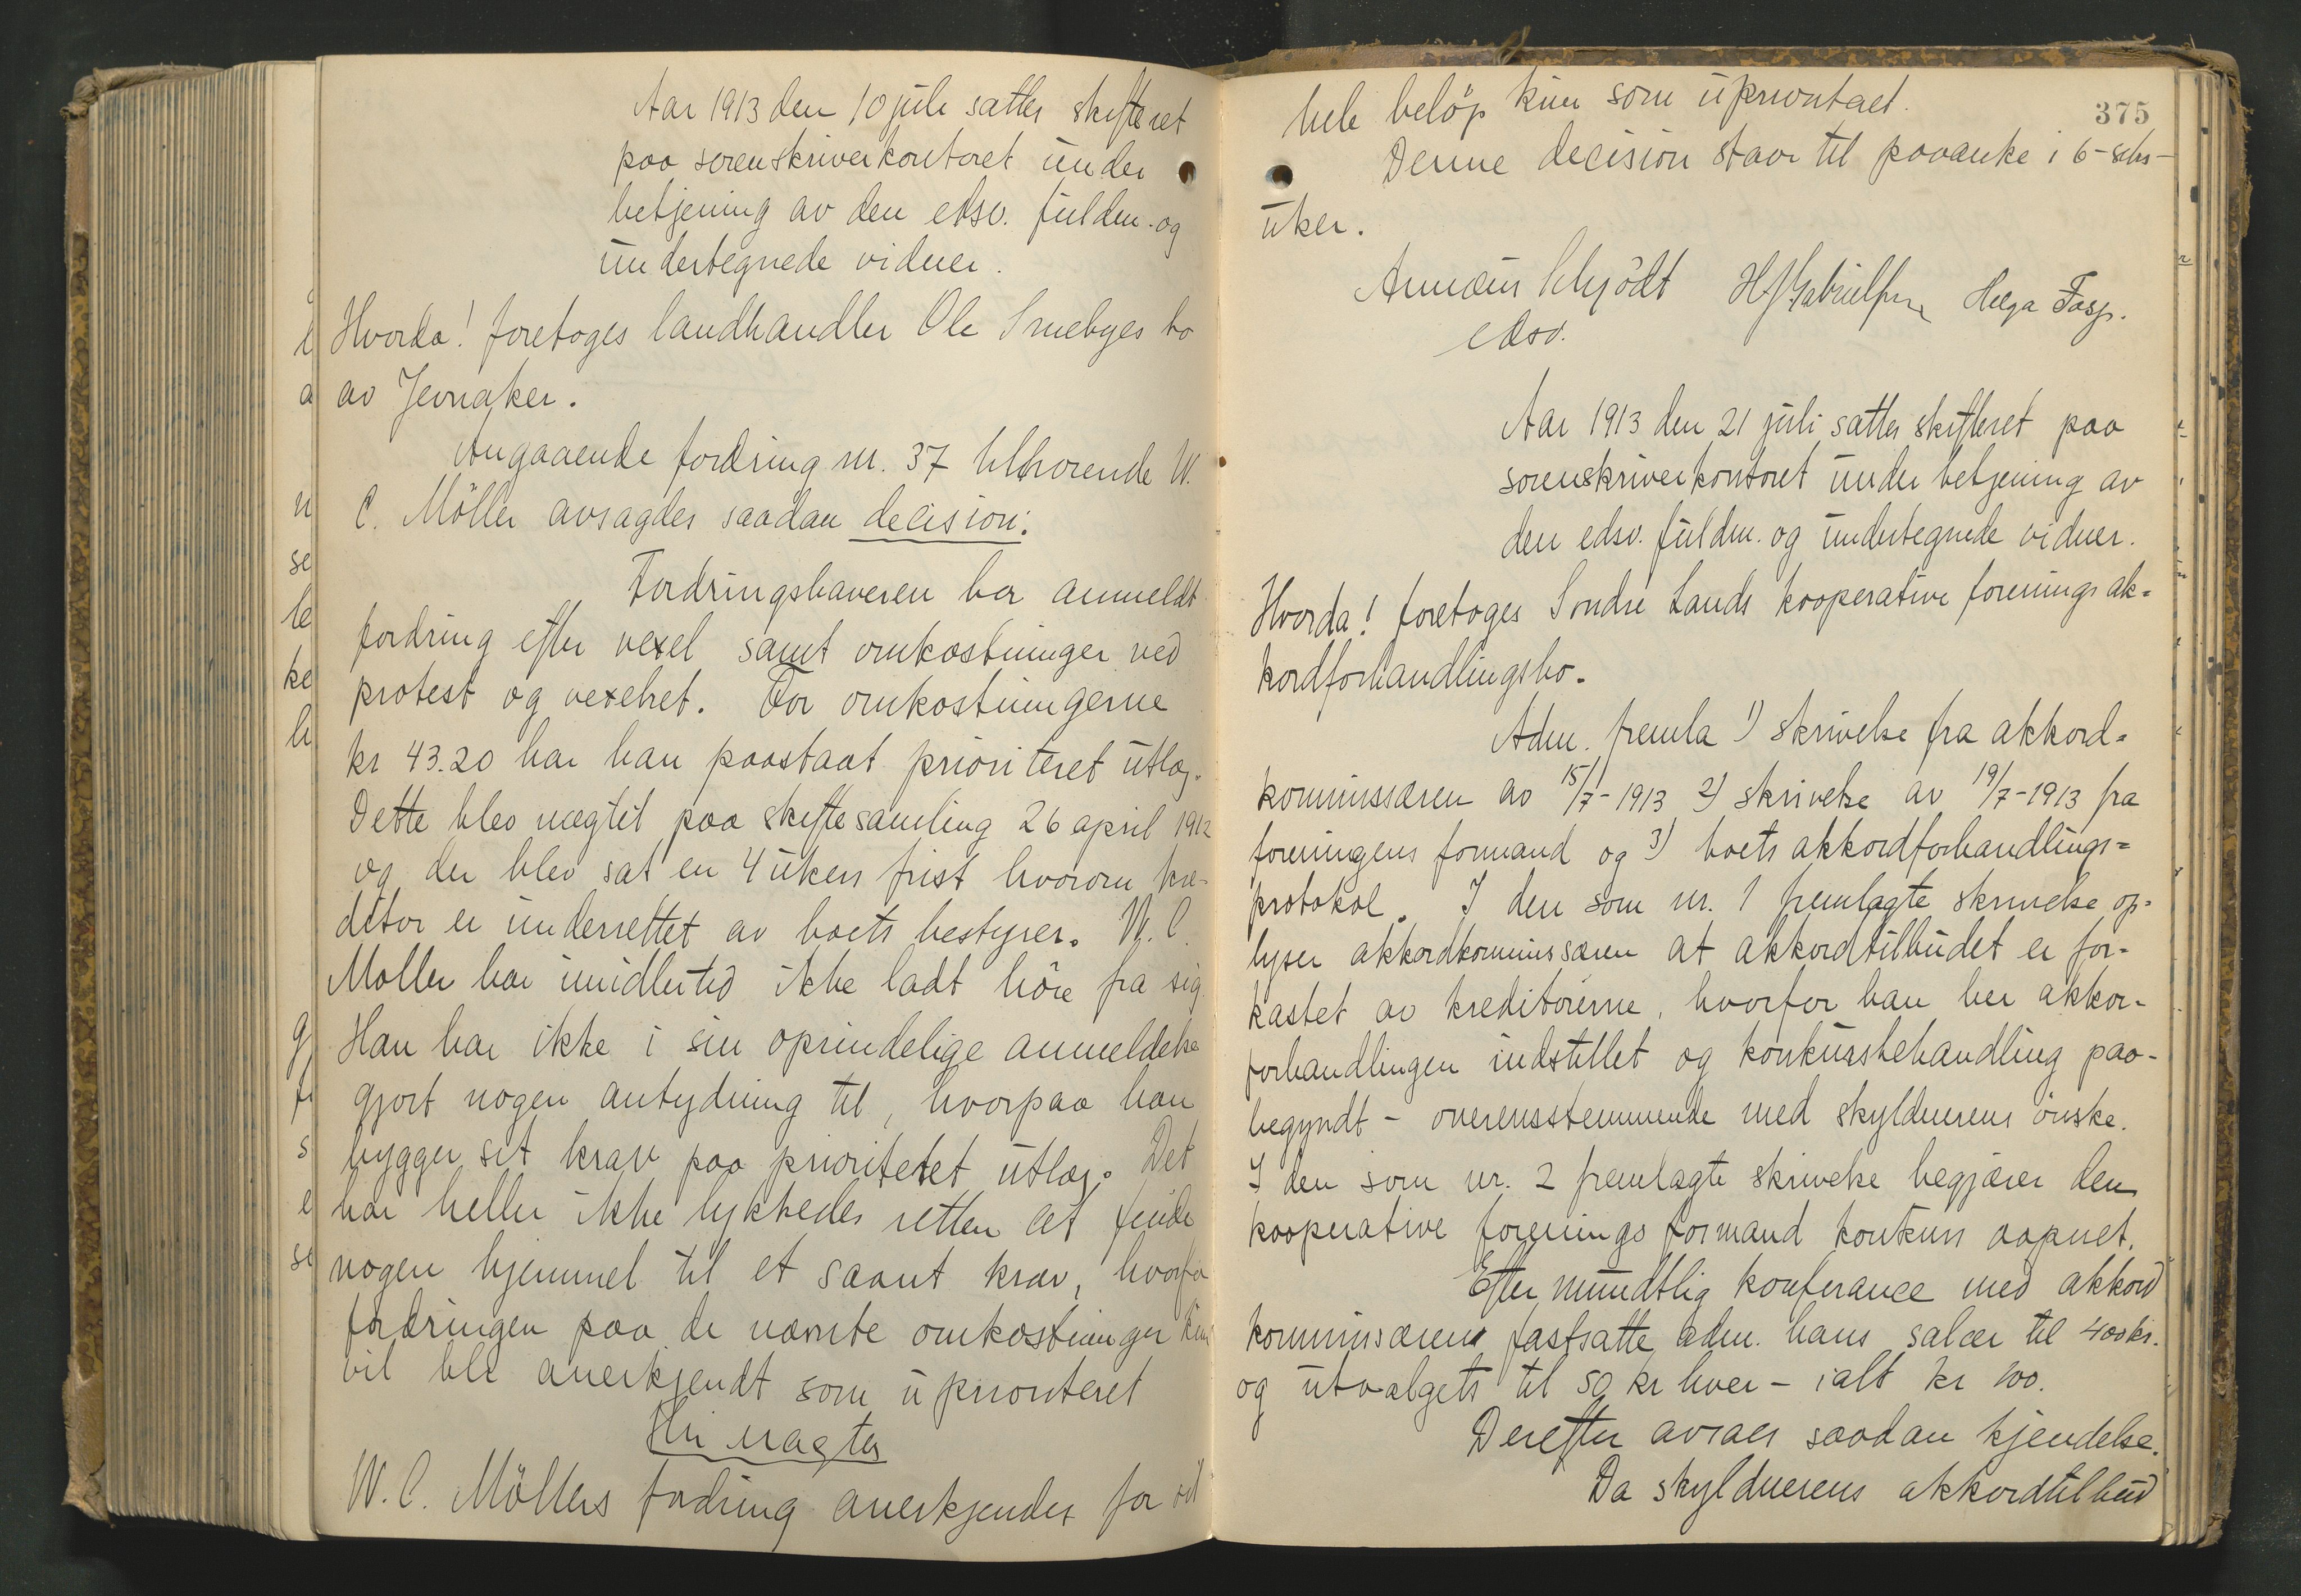 Aar 1913 den 10 juli sattes skifteret
paa sorenskriverkontoret under
betjening av den edsv. fuldm. og
undertegnede vidner.
Hvorda! foretoges landhandler Ole Smebyes bo
av Jevnaker.
Angaaende fordring nr. 37 tilhörende W.
C. Möller avsagdes saadan decision:
Fordringshaveren har anmeldt
fordring efter vexel samt omkostninger ved
protest og vexelret. For omkostningerne
kr 43.20 har han paastaat prioriteret utlæg.
Dette blev nægtet paa skiftesamling 26 april 1912
og der blev sat en 4 ukers frist hvorom kre-
ditor er underrettet av boets bestyrer. W. C.
Moller har imidlertid ikke ladt höre fra sig.
Han har ikke i sin oprindelige anmeldelse
gjort nogen antydning til, hvorpaa han
bygger sit krav paa prioritetet utlæg. Det
har heller ikke lykkedes retten at finde
nogen hjemmel til et saant krav, hvorfor
fordringen paa de nævnte omkostninger kun
vil bli anerkjendt som uprioriteret
Thi eragtes
W. C. Möllers fordring anerkjendes for sit
375
hele belöp kun som uprioriteret.
Denne decision staar til paaanke i 6-seks-
uker.
Annæus Schjödt Helga Fosp.
edsv.
Aar 1913 den 21 juli sattes skifteret paa
sorenskriverkontoret under betjening av
den edsv. fuldm. og undertegnede vidner.
Hvorda! foretoges Söndre Lands kooperative forenings ak=
kordforhandlingsbo.
Adm. fremla 1) skrivelse fra akkord=
kommissæren av 15/7-1913 2) skrivelse av 19/7-1913 fra
foreningens formand og 3) boets akkordforhandlings=
protokol. I den som nr. 1 fremlagte skrivelse op=
lyser akkordkommissæren at akkordtilbudet er for-
kastet av kreditorerne, hvorfor han ber akkor-
forhandlingen indstillet og konkursbehandling paa-
begyndt - overensstemmende med skyldnerens önske.
I den som nr. 2 fremlagte skrivelse begjærer den
kooperative forenings formand konkurs aapnet.
Efter mundtlig konferance med akkord
kommissæren fastsatte adm. hans salær til 400 kr.
og utvalgets til 50 kr hver - ialt kr 100.
Derefter avsaes saadan kjendelse.
Da skyldnerens akkordtilbud